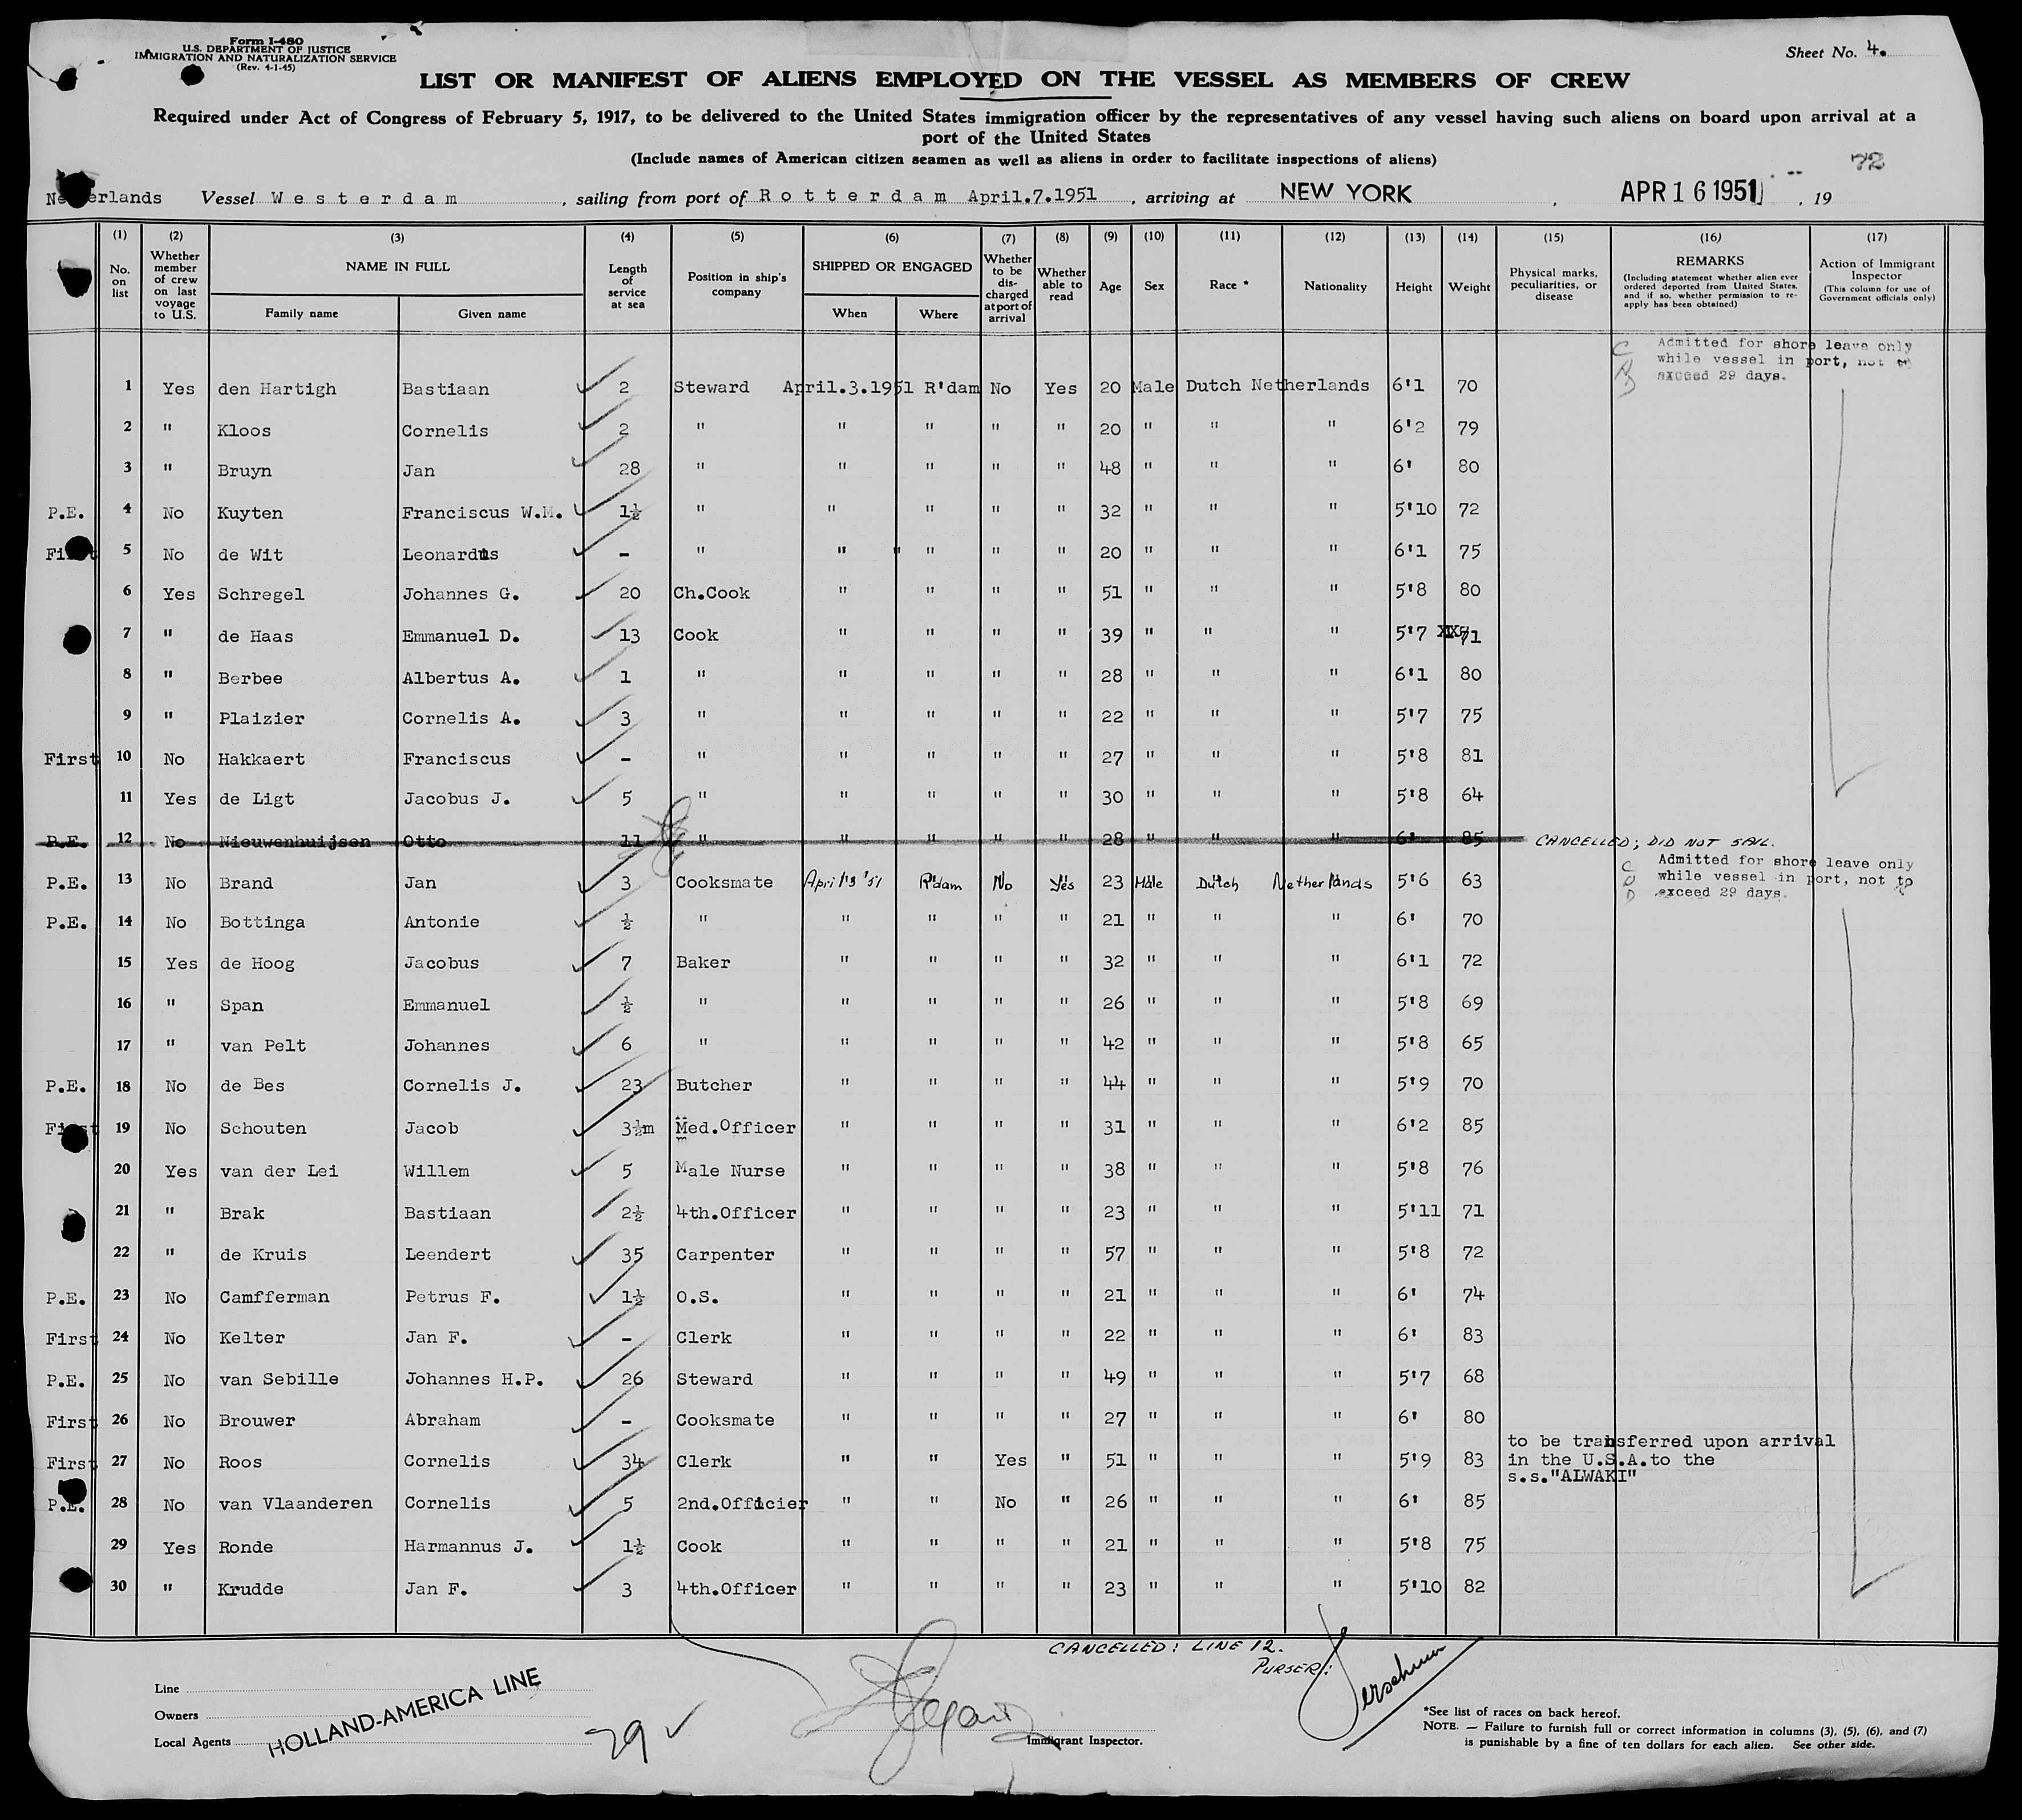 Form I-480
U.S. DEPARTMENT OF JUSTICE
IMMIGRATION AND NATURALIZATION SERVICE
(Rev. 4-1-45)
Sheet No. 4.
LIST OR MANIFEST OF ALIENS EMPLOYED ON THE VESSEL AS MEMBERS OF CREW
Required under Act of Congress of February 5, 1917, to be delivered to the United States immigration officer by the representatives of any vessel having such aliens on board upon arrival at a
port of the United States
(Include names of American citizen seamen as well as aliens in order to facilitate inspections of aliens)
72
Netherlands Vessel Westerdam, sailing from port of Rotterdam April.7.1951, arriving at NEW YORK, APR 16 1951, 19
(1) (2) (3) (4) (5) (6) (7) (8) (9) (10) (11) (12) (13) (14) (15) (16) (17)
No. on list
Whether member of crew on last voyage to U.S.
NAME IN FULL
Family name
Given name
Length of service at sea
Position in ship's company
SHIPPED OR ENGAGED
When
Where
Whether to be discharged at port of arrival
Whether able to read
Age
Sex
Race *
Nationality
Height
Weight
Physical marks, peculiarities, or disease
REMARKS
(Including statement whether alien ever ordered deported from United States, and if so, whether permission to reapply has been obtained)
Action of Immigrant Inspector
(This column for use of Government officials only)
Admitted for shore leave only
while vessel in port, not to
exceed 29 days.
1 Yes den Hartigh Bastiaan 2 Steward April.3.1951 R'dam No Yes 20 Male Dutch Netherlands 6'1 70
2 " Kloos Cornelis 2 " " " " " 20 " " " 6'2 79
3 " Bruyn Jan 28 " " " " " 48 " " " 6' 80
P.E. 4 No Kuyten Franciscus W.M. 1½ " " " " " 32 " " " 5'10 72
First 5 No de Wit Leonardus - " " " " " 20 " " " 6'1 75
6 Yes Schregel Johannes G. 20 Ch.Cook " " " " 51 " " " 5'8 80
7 " de Haas Emmanuel D. 13 Cook " " " " 39 " " " 5'7 71
8 " Berbee Albertus A. 1 " " " " " 28 " " " 6'1 80
9 " Plaizier Cornelis A. 3 " " " " " 22 " " " 5'7 75
First 10 No Hakkaert Franciscus - " " " " " 27 " " " 5'8 81
11 Yes de Ligt Jacobus J. 5 " " " " " 30 " " " 5'8 64
P.E. 12 No Nieuwenhuijsen Otto 11 " " " " " 28 " " " 6' 85 CANCELLED; DID NOT SAIL.
Admitted for shore leave only
while vessel in port, not to
exceed 29 days.
P.E. 13 No Brand Jan 3 Cooksmate April '3 '51 R'dam No Yes 23 Male Dutch Netherlands 5'6 63
P.E. 14 No Bottinga Antonie ½ " " " " " 21 " " " 6' 70
15 Yes de Hoog Jacobus 7 Baker " " " " 32 " " " 6'1 72
16 " Span Emmanuel ½ " " " " " 26 " " " 5'8 69
17 " van Pelt Johannes 6 " " " " " 42 " " " 5'8 65
P.E. 18 No de Bes Cornelis J. 23 Butcher " " " " 44 " " " 5'9 70
First 19 No Schouten Jacob 3½m Med.Officer " " " " 31 " " " 6'2 85
20 Yes van der Lei Willem 5 Male Nurse " " " " 38 " " " 5'8 76
21 " Brak Bastiaan 2½ 4th.Officer " " " " 23 " " " 5'11 71
22 " de Kruis Leendert 35 Carpenter " " " " 57 " " " 5'8 72
P.E. 23 No Camfferman Petrus F. 1½ O.S. " " " " 21 " " " 6' 74
First 24 No Kelter Jan F. - Clerk " " " " 22 " " " 6' 83
P.E. 25 No van Sebille Johannes H.P. 26 Steward " " " " 49 " " " 5'7 68
First 26 No Brouwer Abraham - Cooksmate " " " " 27 " " " 6' 80
First 27 No Roos Cornelis 34 Clerk " " Yes " 51 " " " 5'9 83 to be transferred upon arrival
in the U.S.A.to the
s.s."ALWAKI"
P.E. 28 No van Vlaanderen Cornelis 5 2nd.Officier " " No " 26 " " " 6' 85
29 Yes Ronde Harmannus J. 1½ Cook " " " " 21 " " " 5'8 75
30 " Krudde Jan F. 3 4th.Officer " " " " 23 " " " 5'10 82
CANCELLED: LINE 12.
PURSER:
Line
Owners
Local Agents
HOLLAND-AMERICA LINE
29
Immigrant Inspector.
*See list of races on back hereof.
NOTE. — Failure to furnish full or correct information in columns (3), (5), (6), and (7)
is punishable by a fine of ten dollars for each alien. See other side.